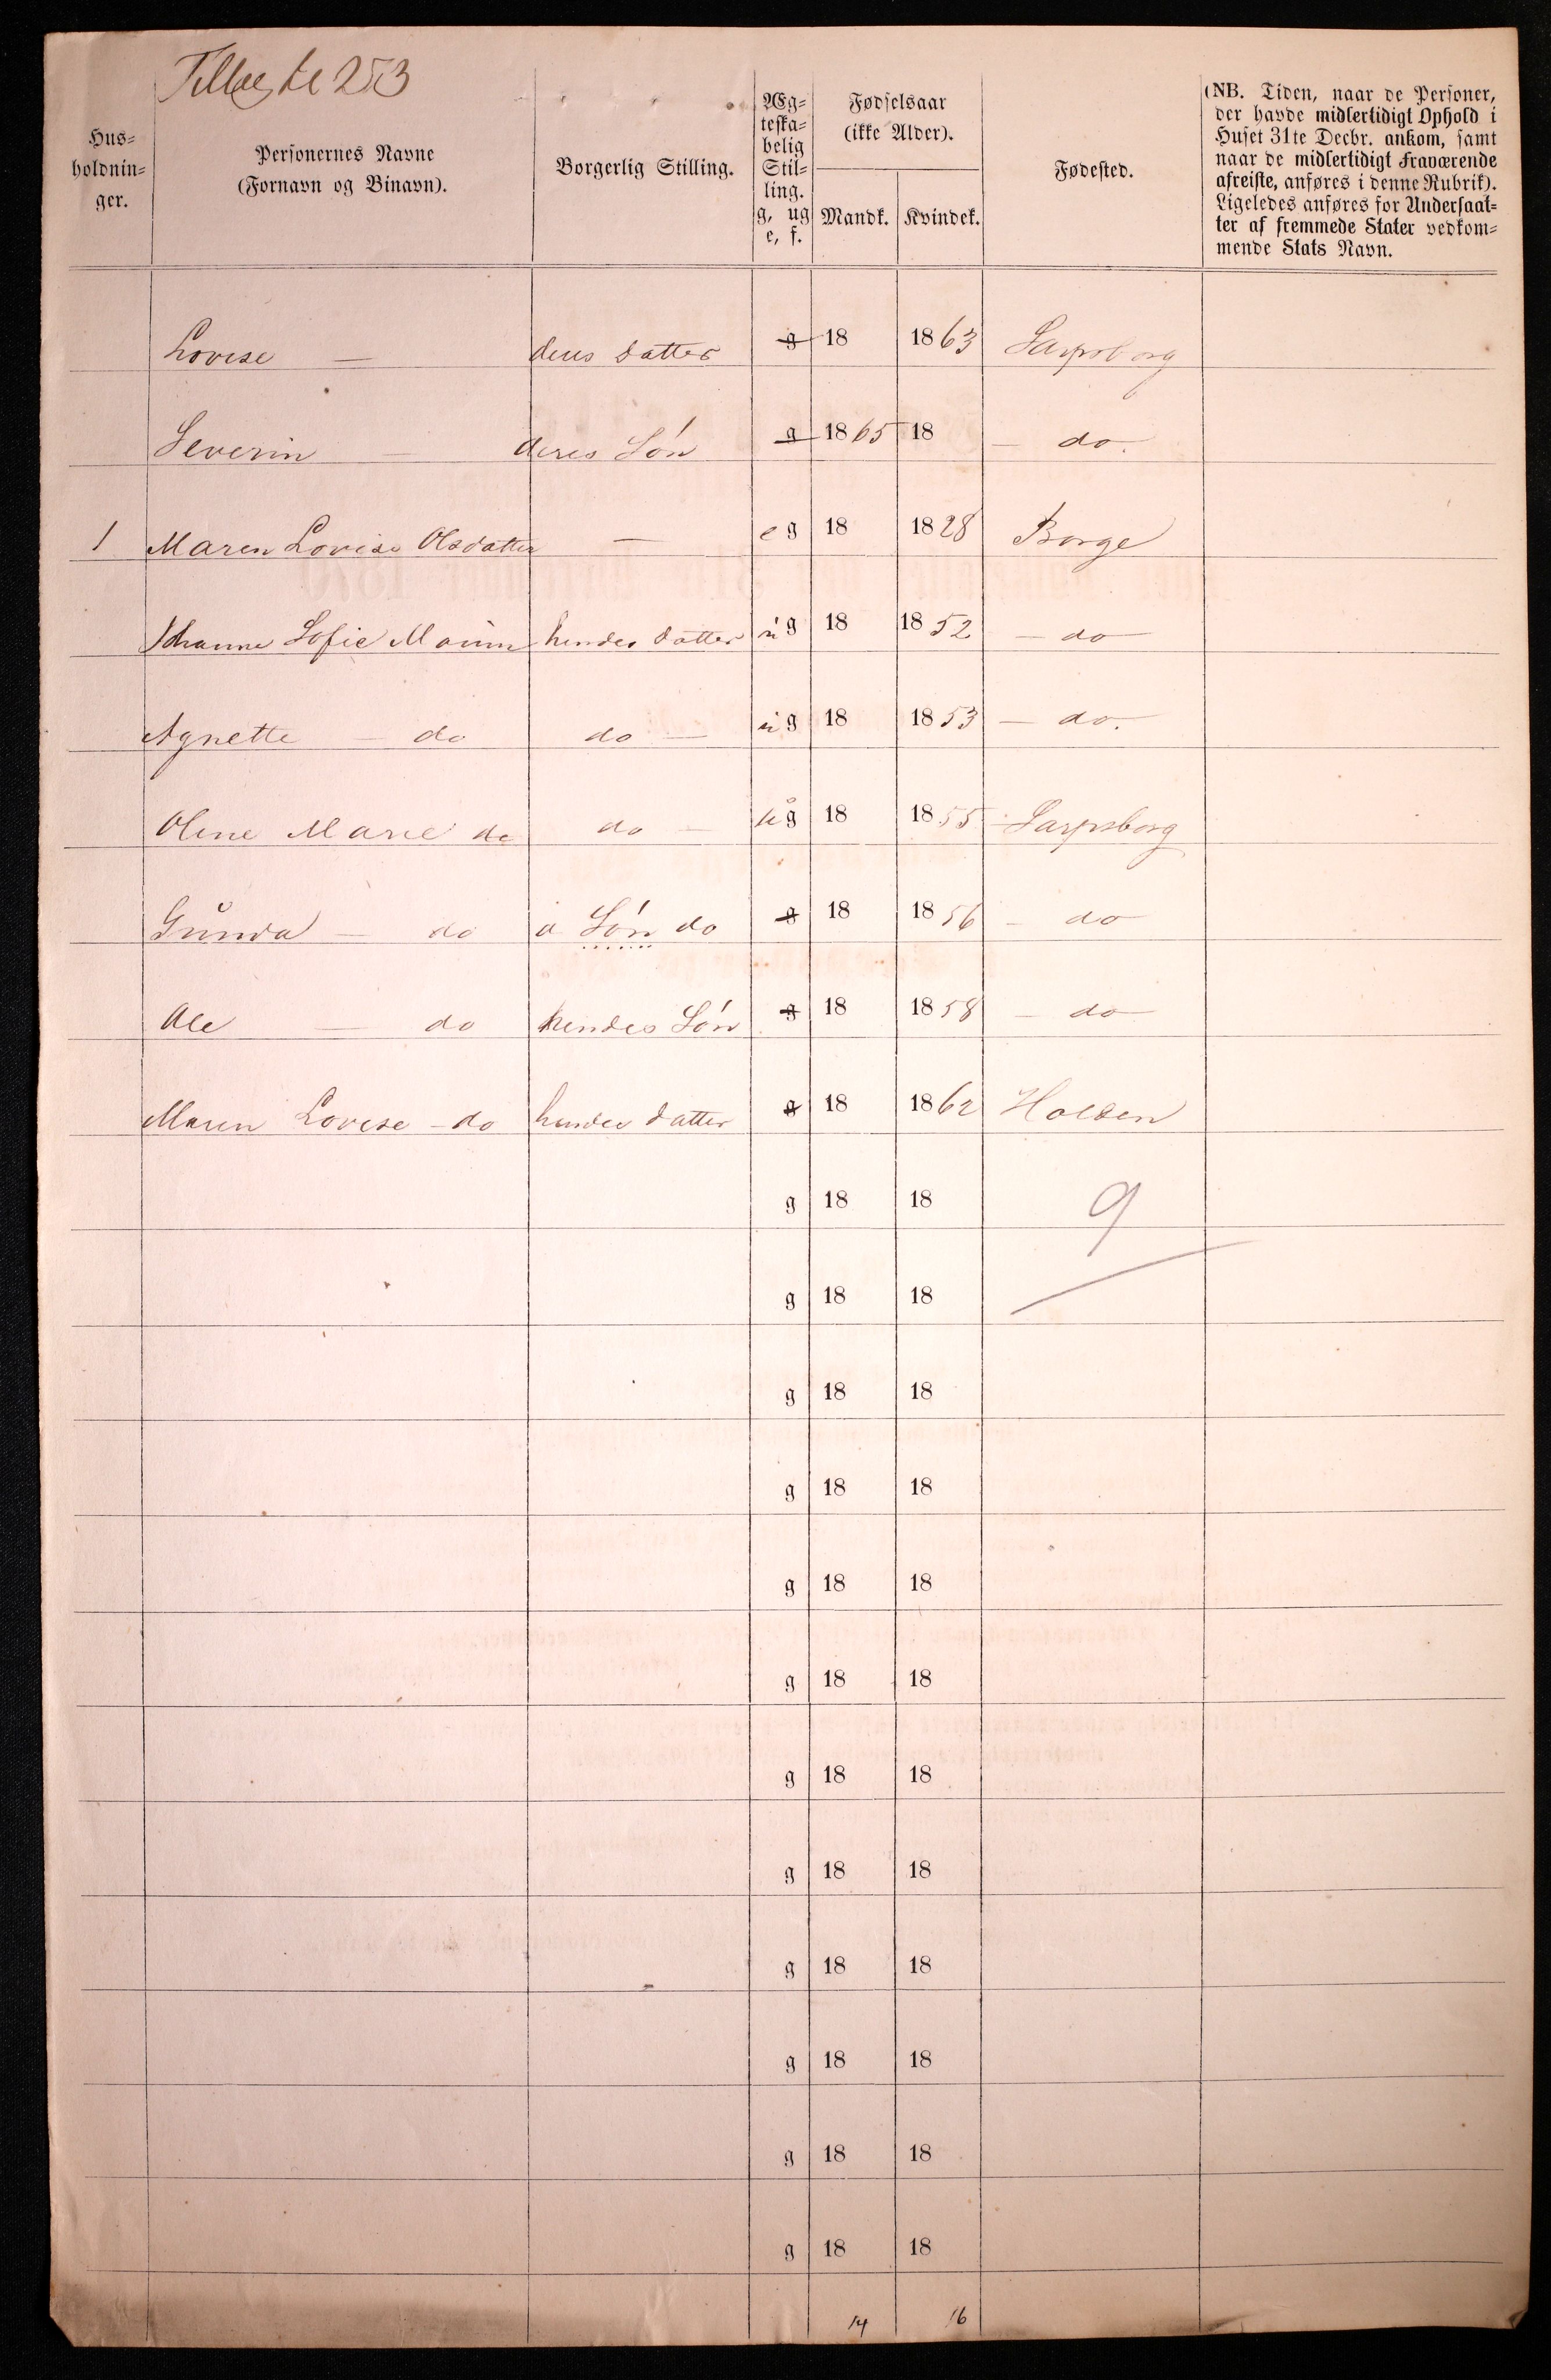 Tillæg til 253
Hus-
holdnin-
ger.
Personernes Navne
(Fornavn og Binavn).
Borgerlig Stilling.
Æg-
teska-
belig
Stil-
ling.
g, ug
e, f.
Fødselsaar
(ikke Alder).
Mandk. Kvindek.
Fødested.
(NB. Tiden, naar de Personer,
der havde midlertidigt Ophold i
Huset 31te Decbr. ankom, samt
naar de midlertidigt Fraværende
afreiste, anføres i denne Rubrik).
Ligeledes anføres for Undersaat-
ter af fremmede Stater vedkom-
mende Stats Navn.
Lovise — deres datter g 18 1863 Sarpsborg
Severin — deres Søn g 1865 18 — do.
1 Maren Lovise Olsdatter — e g 18 1828 Borge
Johanne Sofie hendes datter u g 18 1852 — do —
Agnette — do do — u g 18 1853 — do.
Oline Marie do do — u g 18 1855 Sarpsborg
Gunda — do a Søn do g 18 1856 — do
Ole — do hendes Søn g 18 1858 — do
Maren Lovise — do hendes datter g 18 1862 Holden
g 18 18 9
g 18 18
g 18 18
g 18 18
g 18 18
g 18 18
g 18 18
g 18 18
g 18 18
g 18 18
g 18 18
g 18 18
14 16